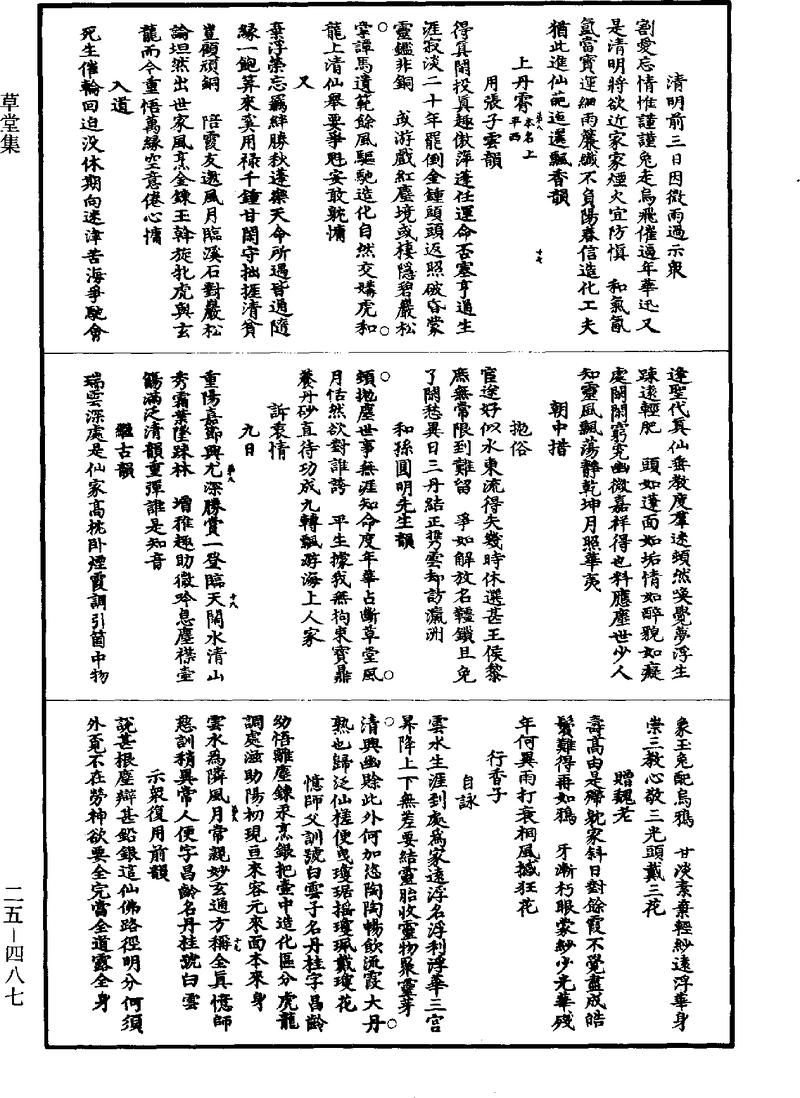 草堂集
清明前三日因微雨過示衆
割愛忘情惟謹謹兔走烏飛催過年華迅又
是清明將欲近家家煙火宜防慎　和氣氤
氳當寳運細雨簾纖不負陽春信造化工夫
猶此進仙葩迤邐飄香韻
上丹霄本名上平西
用張子雲韻
得真閑投真趣傲萍蓬任運命否塞亨通生
涯寂淡二十年罷倒金鍾頭頭返照破昏蒙
靈鑑非銅　或游戲紅塵境或棲隱碧巖松
○掌譚馬遺範餘風驅馳造化自然交媾虎和○
龍上清仙舉要爭魁安敢躭慵
又
棄浮榮忘羈絆勝秋蓬樂天命所遇皆通隨
緣一飽算來奚用禄千鍾甘閑守拙捱清貧
豈顧頑銅　陪霞友邀風月臨溪石對巖松
論坦然出世家風烹金鍊玉斡旋牝虎與玄
龍而今重悟萬緣空意倦心慵
入道
死生催輪回迫没休期向迷津苦海爭馳會
逢聖代真仙垂教度羣迷頓然喚覺夢浮生
踈遠輕肥　頭如蓬面如垢情如醉貌如癡
處閴闃窮究幽微嘉祥得也料應塵世少人
知靈風飄蕩靜乾坤月照華夷
朝中措
抱俗
宦途好似水東流得失幾時休選甚王侯黎
庶無常限到難留　爭如解放名韁鎖且免
了閑愁異日三丹結正携雲却訪瀛洲
和孫圓明先生韻
○頓抛塵世事無涯知命度年華占斷草堂風○
月恬然欲對誰誇　平生據我無拘束寳鼎
養丹砂直待功成九轉飄游海上人家
訴衷情
九日
重陽嘉節興尤深勝賞一登臨天闊水清山
秀霜葉墜踈林　增雅趣助微吟息塵襟壺
觴滿泛清韻重彈誰是知音
繼古韻
瑞雲深處是仙家高枕卧煙霞調引箇中物
象玉兔配烏鴉　甘淡素棄輕紗遠浮華身
崇三教心敬三光頭戴三花
贈魏老
壽高由是殢躭家斜日對餘霞不覺盡成皓
鬢難得再如鴉　牙漸朽眼蒙紗少光華殘
年何異雨打衰桐風撼狂花
行香子
自詠
雲水生涯到處爲家遠浮名浮利浮華三宫
昇降上下無差要結靈胎收靈物聚靈芽
○清興幽賒此外何加恁陶陶暢飲流霞大丹○
熟也歸泛仙槎便曳瓊琚摇瓊珮戴瓊花
憶師父訓號白雲子名丹桂字昌齡
幼悟離塵鍊汞烹銀把壺中造化區分虎龍
調處滋助陽初現亘來容元來面本來身
雲水為隣風月常親妙玄通方稱全真憶師
慈訓稍異常人便字昌齡名丹桂號白雲
示衆復用前韻
説甚根塵辯甚鉛銀這仙佛路徑明分何須
外覓不在勞神欲要全完當全道露全身
二五－四八七